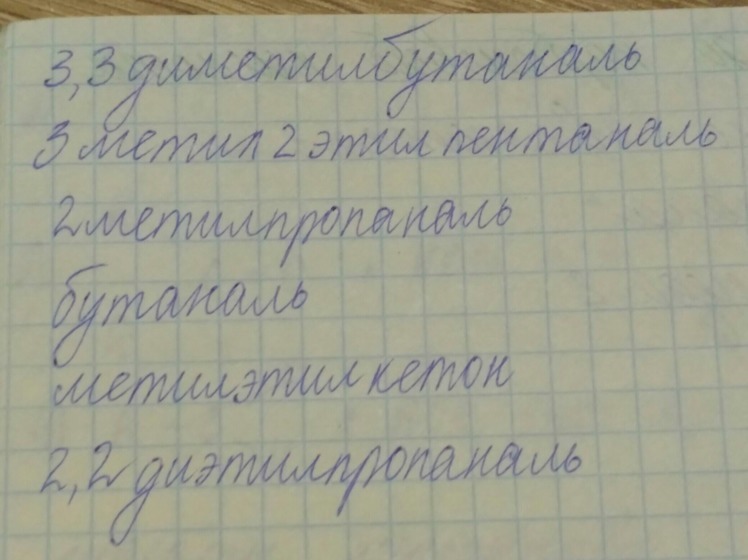 3,3 диметилбутаналь
3 метил 2 этил пентаналь
2 метилпропаналь
бутаналь
метилэтил кетон
2,2 диэтилпропаналь